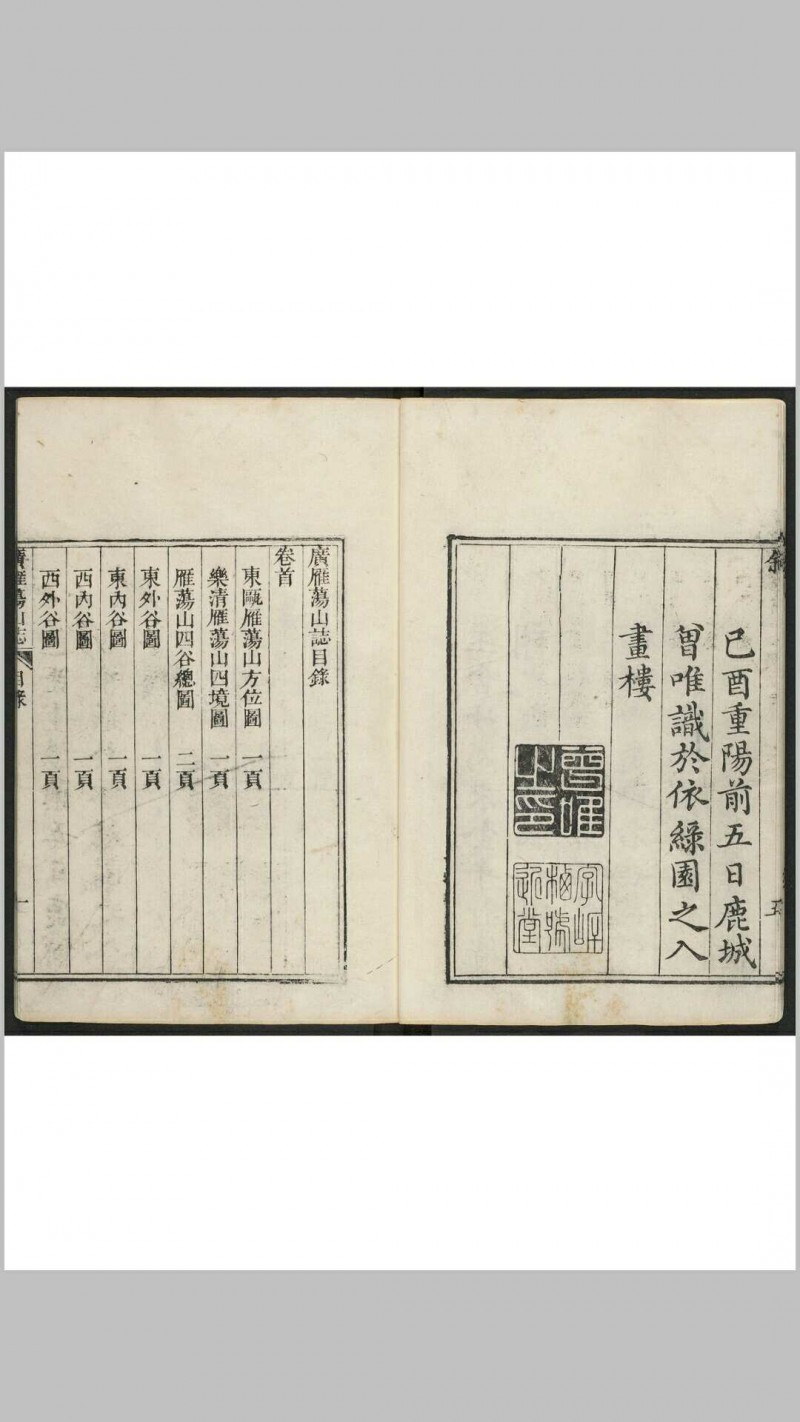 己酉重陽前五日鹿城
曾唯識於依綠園之入
畫樓
曾唯之印
廣雁蕩山誌目錄
卷首
東甌雁蕩山方位圖 一頁
樂清雁蕩山四境圖 一頁
雁蕩山四谷總圖 二頁
東外谷圖 一頁
東內谷圖 一頁
西內谷圖 一頁
西外谷圖 一頁
廣雁蕩山誌 目錄 一